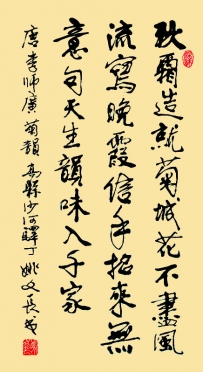 秋霜造就菊城花不盡風
流寫晚霞信手拈來無
意句天生韻味入千家
唐李師廣菊韻 高縣沙河驛丁 姚文長書